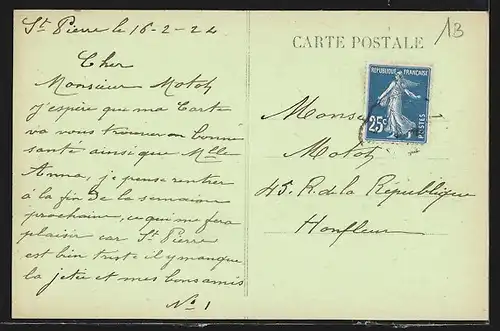 St Pierre le 16-2-24
Cher
Monsieur Motoh
J'espère que ma Carte
va vous trouver en bonne
santé ainsi que Mlle
Anna, je pense rentrer
à la fin de la semaine
prochaine, ce qui me fera
plaisir car St Pierre
est bien triste il y manque
la jetée et mes bons amis
No 1
13
CARTE POSTALE
REPUBLIQUE FRANÇAISE
25c
POSTES
Monsieur
Motoh
45. R. de la République
Honfleur